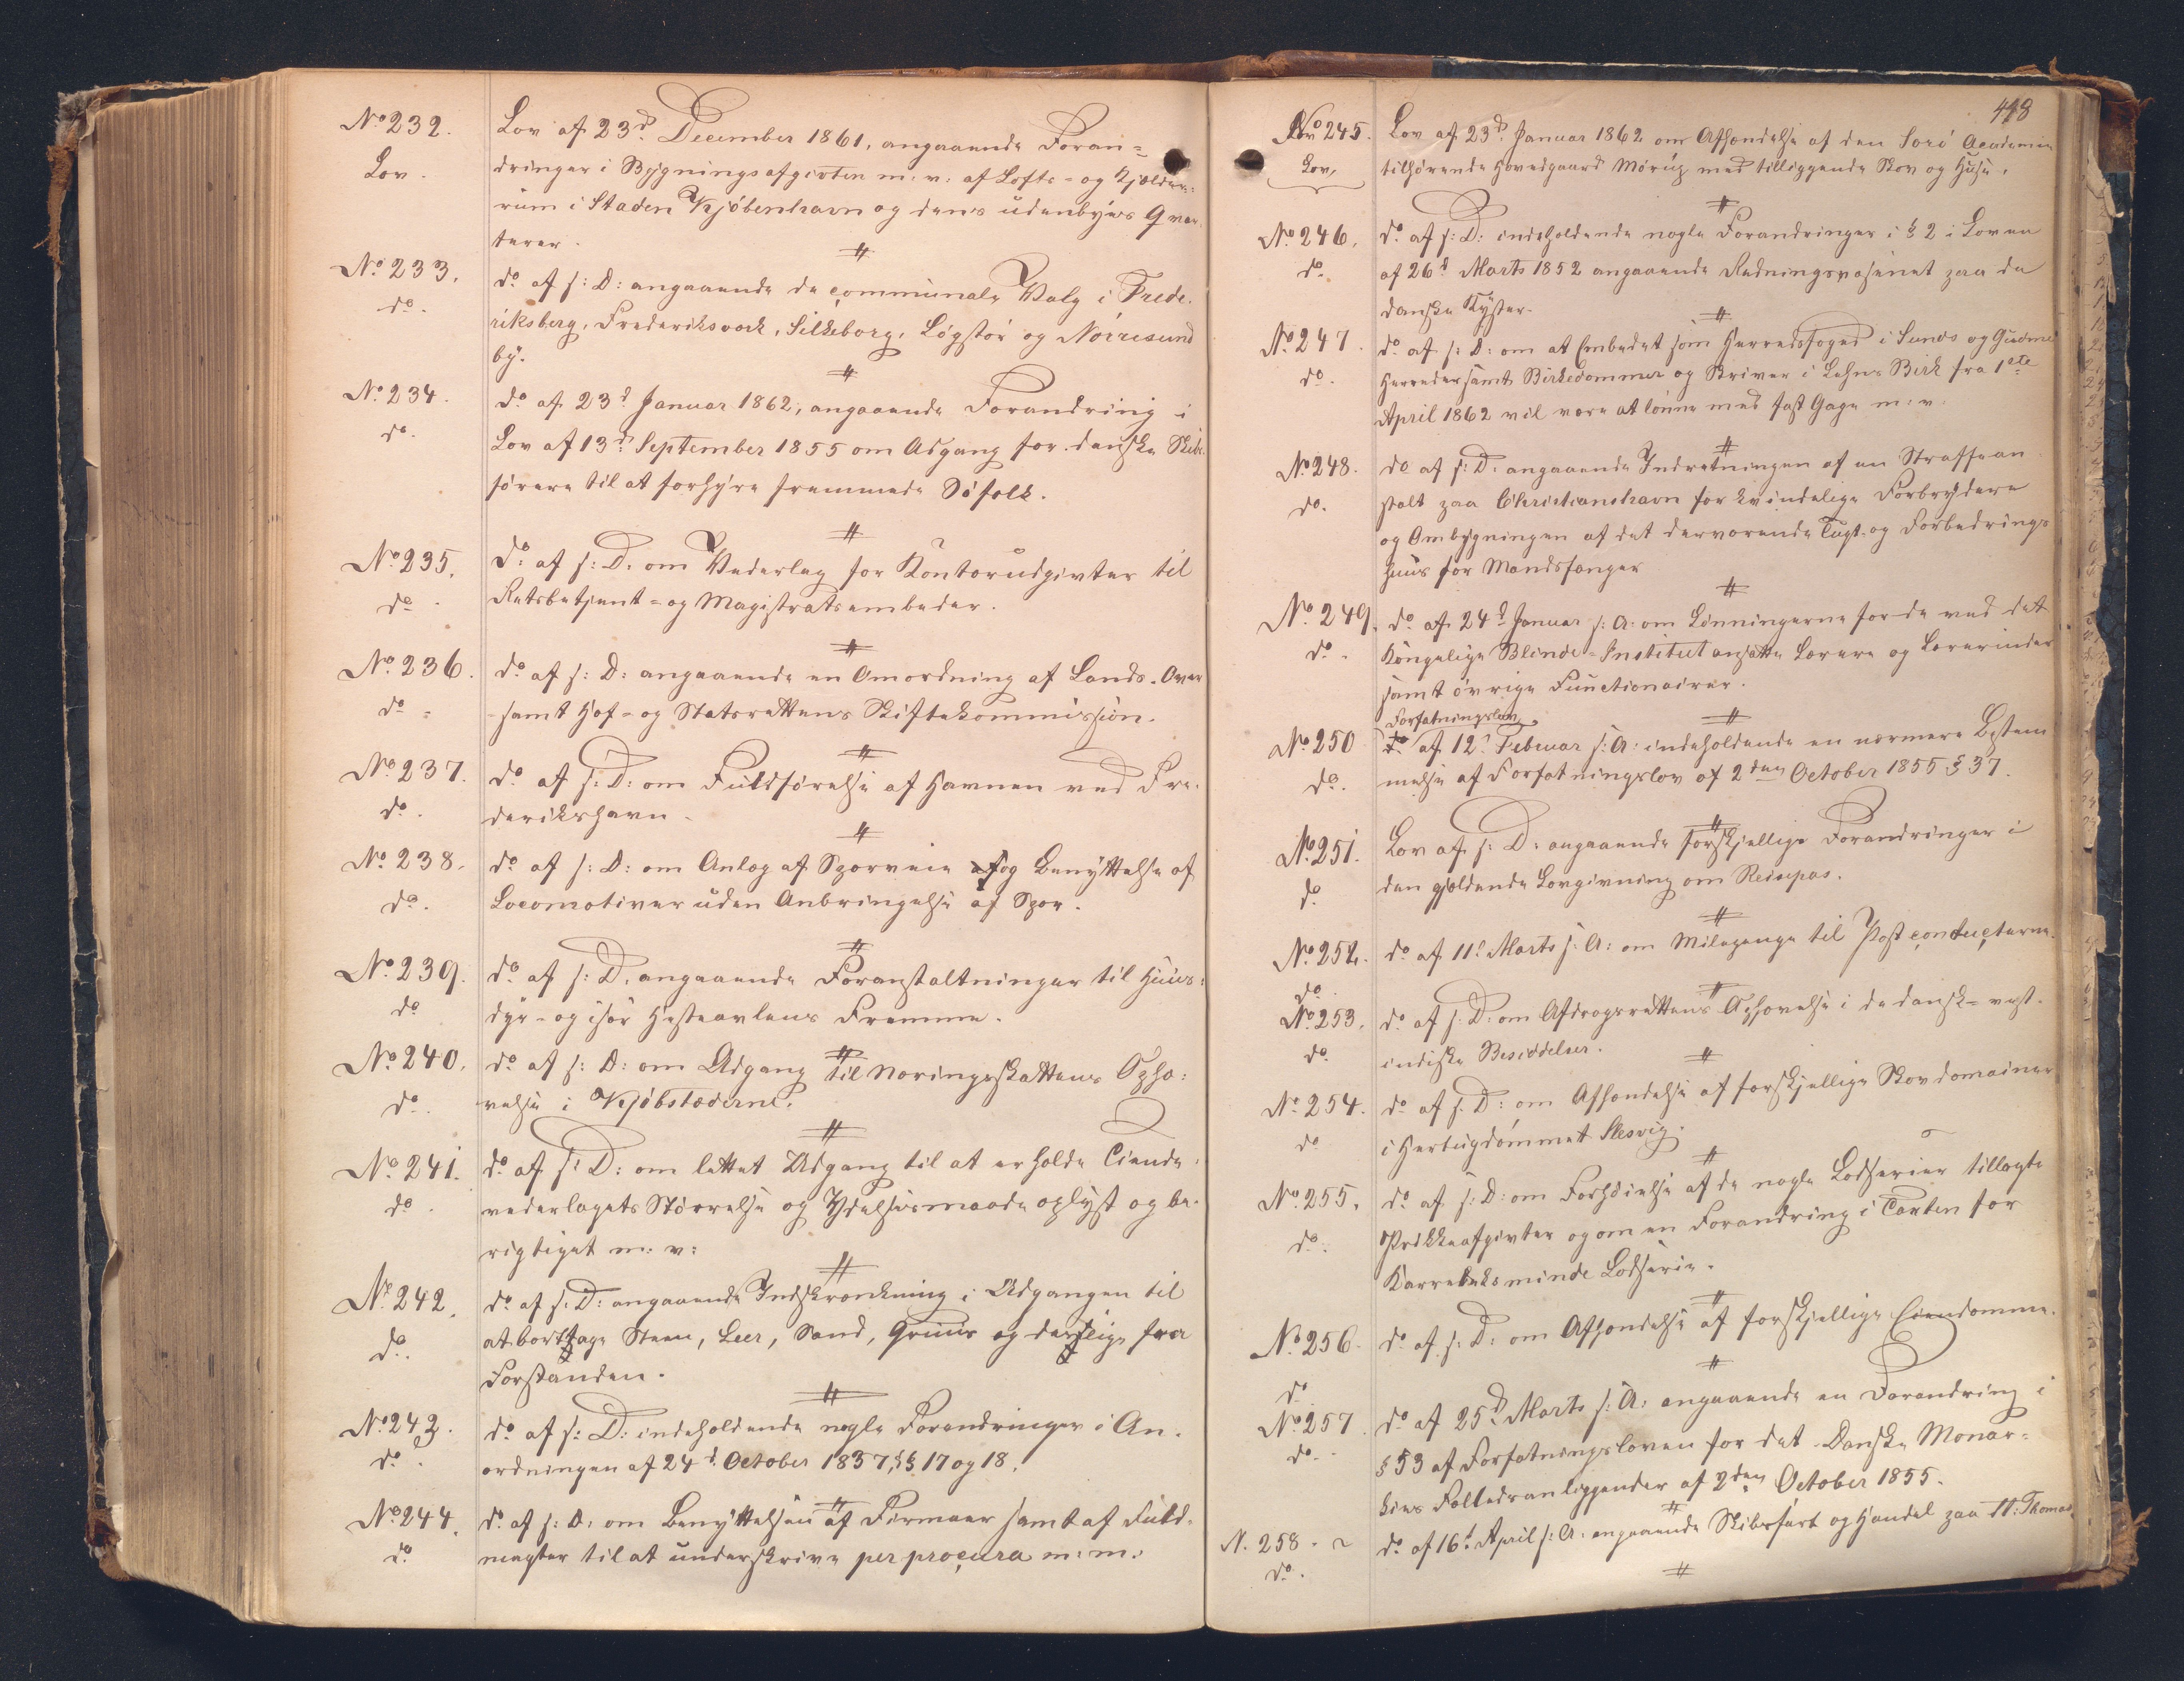 No 232.
Lov.
Lov af 23d December 1861, angaaende Foran=
dringer i Bygningsafgivten m: v: af Lofts- og Kjelder=
rum i Staden Kjøbenhavn og dens udenbyes Qvar
terer.
No 233.
do.
do af s: D: angaaende de communale Valg i Frede.
riksberg, Frederiksværk, Silkeborg, Løgstør og Nørresund
by.
No 234.
do.
do af 23d Januar 1862, angaaende Forandring i
Lov af 13d September 1855 om Adgang for danske Skibs
førere til at forhyre fremmede Søfolk.
No 235.
do
do af s: D: om Vederlag for Kontorudgivter til
Retsbetjent- og Magistratsembeder.
No 236.
do
do af s: D: angaaende en Omordning af Lands-Over
-samt Hof- og Statsrettens Skiftekommission.
No 237.
do.
do af s: D: om Fuldførelse af Havnen ved Fre.
derikshavn.
No 238.
do.
do af s: D: om Anlæg af Sporveie og Benyttelse af
Locomotiver uden Anbringelse af Spor.
No 239.
do
do af s: D. angaaende Foranstaltninger til Huus=
dyr- og især Hesteavlens Fremme.
No 240.
do.
do af s: D: om Adgang til Næringsskattens Ophæ=
velse i Kjøbstæderne.
No 241.
do.
do af s: D: om lettet Adgang til at erholde Tiende.
vederlagets Størrelse og Ydelsesmaade oplyst og be.
rigtiget m: v:
No 242.
do.
do af s: D: angaaende Indskrænkning i Adgangen til
at borttage Steen, Leer, Sand, Gruus og deslige fra
Forstranden.
No 243.
do.
do af s: D: indeholdende nogle Forandringer i An.
ordningen af 24d October 1837, §§ 17 og 18.
No 244.
do
do af s: D: om Benyttelsen af Firmaer samt af Fuld.
magter til at underskrive per procura m: m:
418
No 245.
Lov,
Lov af 23d Januar 1862 om Afhændelse af den Sorø Academie
tilhørende Hovedgaard Mørup med tilliggende Skov og Huse.
No 246.
do
do af s: D: indeholdende nogle Forandringer i § 2 i Loven
af 26d Marts 1852 angaaende Redningsvæsenet paa de
danske Kyster.
No 247.
do.
do af s: D: om at Embedet som Herredsfoged i Sunds og Gudme
Herreder samt Birkedommer og Skriver i Lehns Birk fra 1ste
April 1862 vil være at lønne med fast Gage m: v:
No 248.
do.
do af s: D: angaaende Indretningen af en Straffean
stalt paa Christianshavn for kvindelige Forbrydere
og Ombygningen af det derværende Tugt- og Forbedrings
huus for Mandsfanger
No 249.
do.
do af 24d Januar s: A: om Lønningerne for de ved det
Kongelige Blinde-Institut ansatte Lærere og Lærerinder
samt øvrige Functionairer.
No 250
do.
Forfatningslov
do af 12d Februar s: A: indeholdende en nærmere Bestem
melse af Forfatningslov af 2den October 1855 § 37.
No 251.
do
Lov af s: D: angaaende forskjellige Forandringer i
den gjældende Lovgivning om Reisepas.
No 252.
do
do af 11d Marts s: A: om Milepenge til Postconducteurne.
No 253.
do
do af s: D: om Afdragsrettens Ophævelse i de dansk-vest.
indiske Besiddelser.
No 254.
do
do af s: D: om Afhændelse af forskjellige Skovdomainer
i Hertugdømmet Slesvig.
No 255.
do.
do af s: D: om Forhøielse af de nogle Lodserier tillagte
Prikkeafgivter og om en Forandring i Taxten for
Karrebæksminde Lodserie.
No 256.
do
do af s: D: om Afhændelse af forskjellige Eiendomme.
No 257.
do.
do af 25d Marts s: A: angaaende en Forandring i
§ 53 af Forfatningsloven for det Danske Monar=
kies Fælledsanliggender af 2den October 1855.
N. 258.
do.
do af 16d April s: A: angaaende Skibsfart og Handel paa St: Thomas